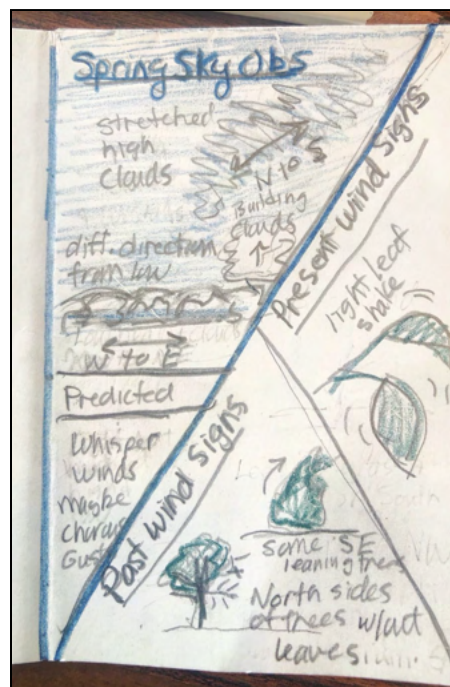 Spring Sky Obs
stretched
high
clouds
N to S
Building
clouds
diff. direction
from low
W to E
Predicted
Whisper
winds
maybe
chorus
Gust
Present Wind Signs
light leaf
shake
Past Wind Signs
some SE
leaning trees
North sides
of trees w/out
leaves